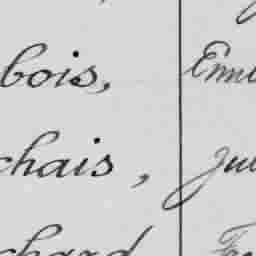 bois, Emi
chais, Jul
chard